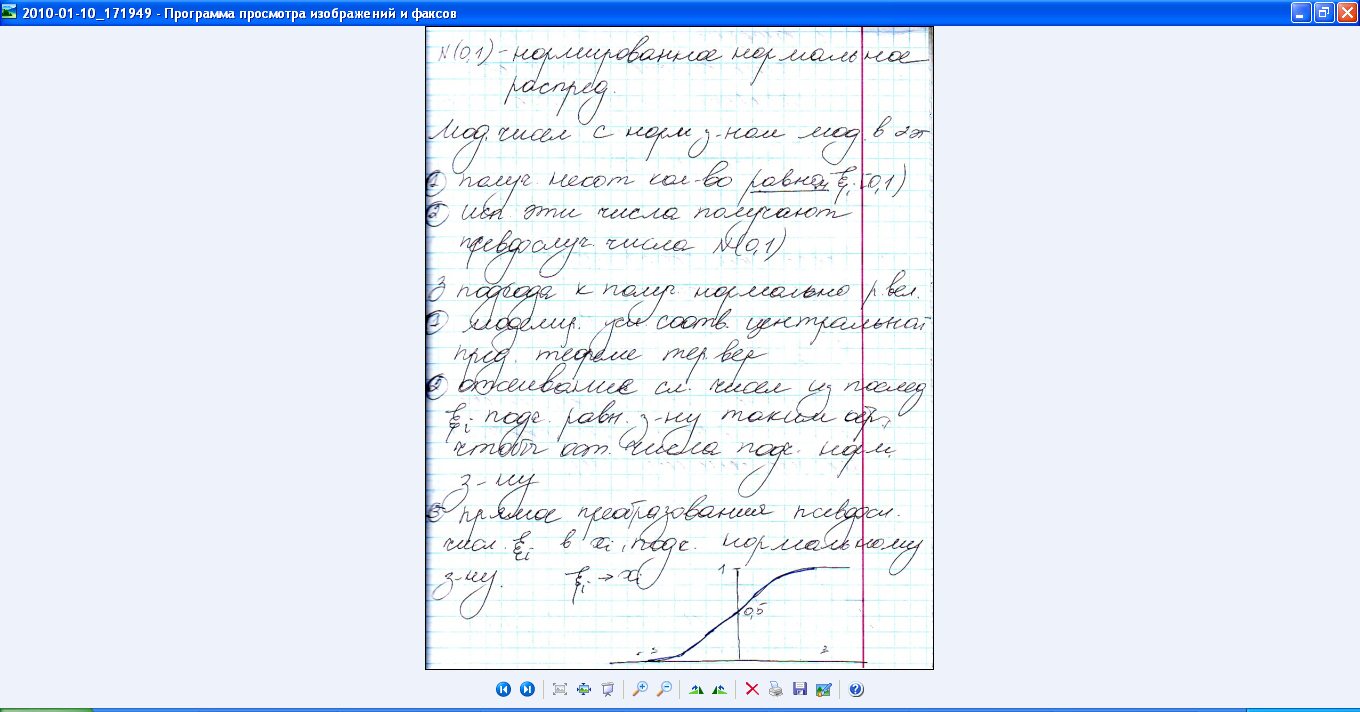 2010-01-10_171949 - Программа просмотра изображений и факсов
N(0,1) - нормированное нормальное
распред.
Мод. чисел с норм з-ном мод. в 2эт
① получ. некот кол-во равном ξi (0,1)
② исп. эти числа получают
псевдослуч. числа N(0,1)
3 подхода к получ. нормально р вел.
① моделир. усл. соотв. центральной
пред. теореме тер вер
② отсеивание сл. чисел из послед
ξi подч. равн. з-ну таким обр,
чтобы ост. числа подч. норм.
з-ну
③ прямое преобразования псевдосл.
чисел. ξi в xi, подч. нормальному
з-ну. ξi → xi
1
0,5
-3 3